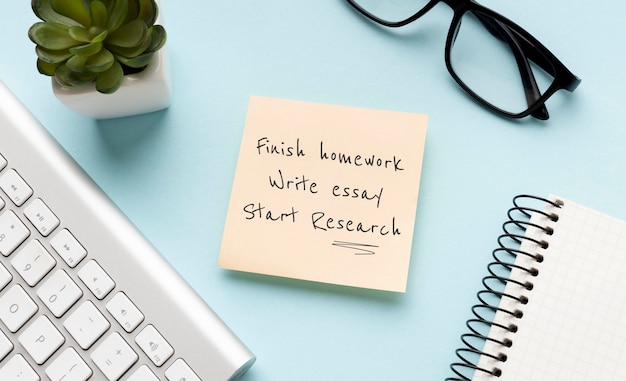 Finish homework
Write essay
Start Research